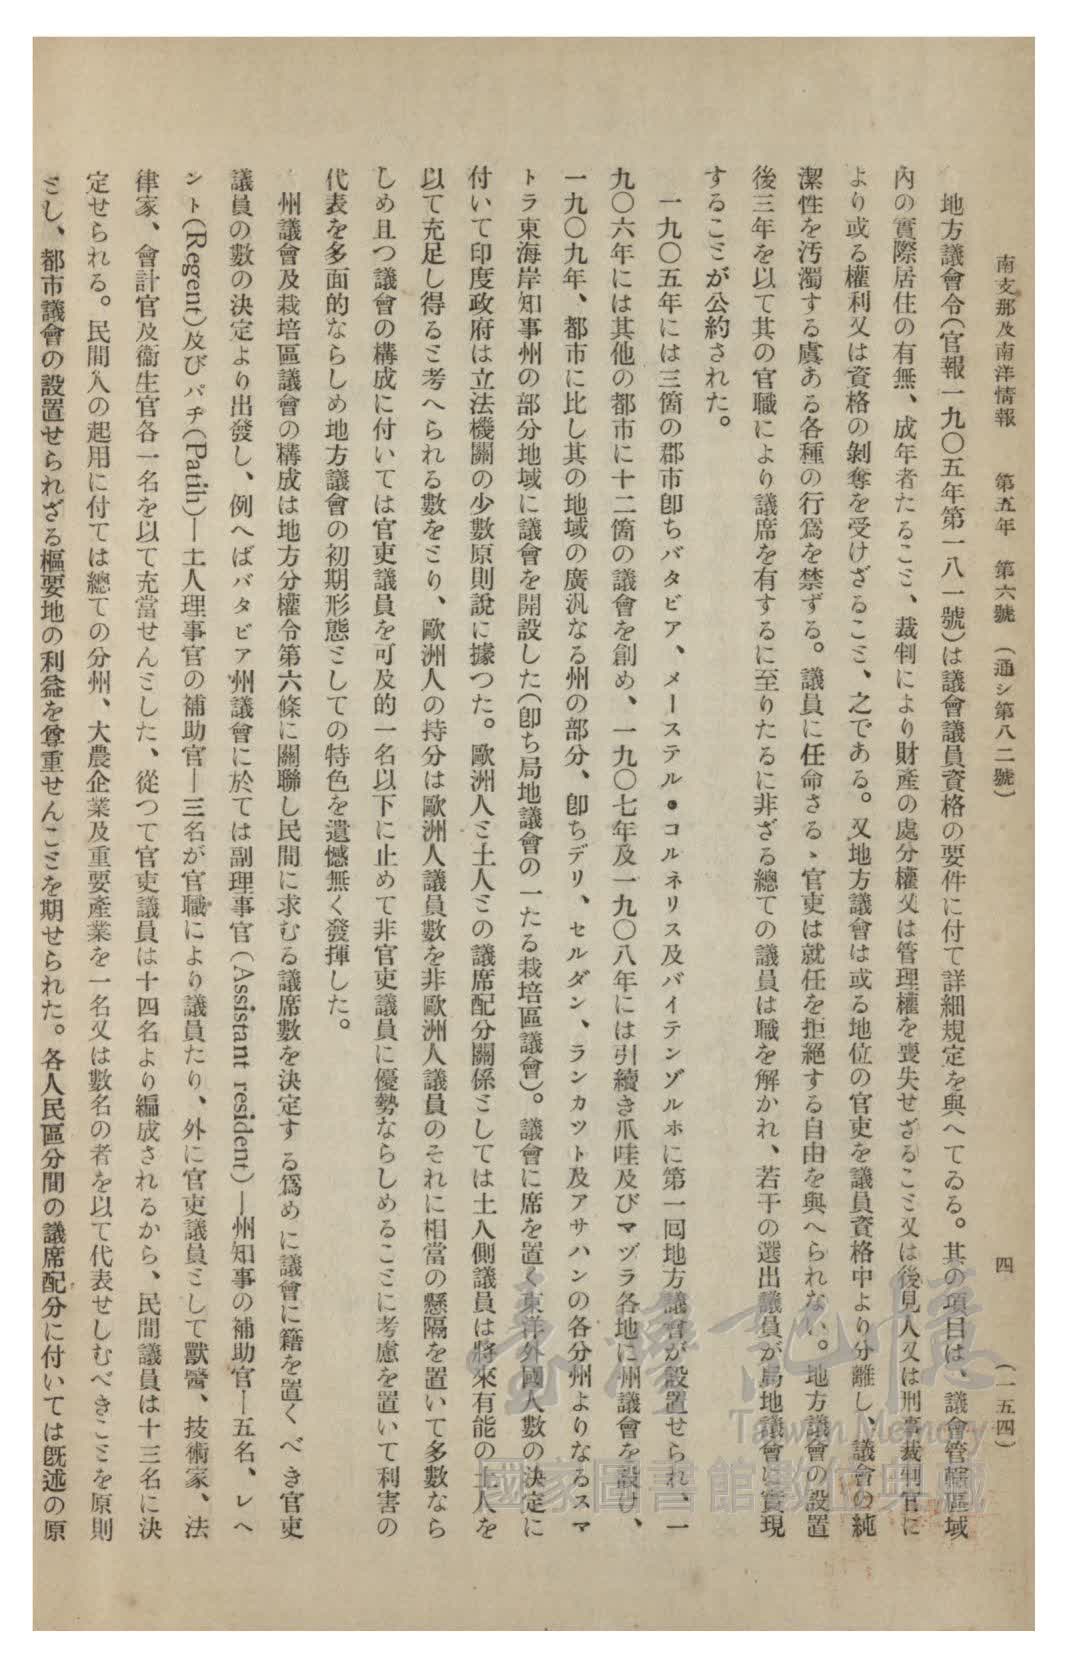 南支那及南洋情報　第五年　第六號　(通シ第八二號)　四　(一五四)
地方議會令(官報一九〇五年第一八一號)は議會議員資格の要件に付て詳細規定を與へてゐる。其の項目は、議會管轄區域
內の實際居住の有無、成年者たるこミ、裁判により財產の處分權又は管理權を喪失せざるこミ又は後見人又は刑事裁判官に
より或る權利又は資格の剝奪を受けざるこミ、之である。又地方議會は或る地位の官吏を議員資格中より分離し、議會の純
潔性を汚濁する虞ある各種の行爲を禁ずる。議員に任命さるゝ官吏は就任を拒絕する自由を與へられない。地方議會の設置
後三年を以て其の官職により議席を有するに至りたるに非ざる總ての議員は職を解かれ、若干の選出議員が局地議會に實現
するこミが公約された。
一九〇五年には三箇の郡市卽ちバタビア、メーステル・コルネリス及バイテンゾルホに第一囘地方議會が設置せられ、一
九〇六年には其他の都市に十二箇の議會を創め、一九〇七年及一九〇八年には引續き爪哇及びマヅラ各地に州議會を設け、
一九〇九年、都市に比し其の地域の廣汎なる州の部分、卽ちデリ、セルダン、ランカット及アサハンの各分州よりなるスマ
トラ東海岸知事州の部分地域に議會を開設した(卽ち局地議會の一たる栽培區議會)。議會に席を置く東洋外國人數の決定に
付いて印度政府は立法機關の少數原則說に據つた。歐洲人ミ土人ミの議席配分關係ミしては土人側議員は將來有能の土人を
以て充足し得るミ考へられる數をミり、歐洲人の持分は歐洲人議員數を非歐洲人議員のそれに相當の懸隔を置いて多數なら
しめ且つ議會の構成に付いては官吏議員を可及的一名以下に止めて非官吏議員に優勢ならしめるこミに考慮を置いて利害の
代表を多面的ならしめ地方議會の初期形態ミしての特色を遺憾無く發揮した。
州議會及栽培區議會の構成は地方分權令第六條に關聯し民間に求むる議席數を決定する爲めに議會に籍を置くべき官吏
議員の數の決定より出發し、例へばバタビア州議會に於ては副理事官(Assistant resident)—州知事の補助官—五名、レヘ
ント(Regent)及びパチ(Patih)—土人理事官の補助官—三名が官職により議員たり、外に官吏議員ミして獸醫、技術家、法
律家、會計官及衞生官各一名を以て充當せんミした、從つて官吏議員は十四名より編成されるから、民間議員は十三名に決
定せられる。民間人の起用に付ては總ての分州、大農企業及重要產業を一名又は數名の者を以て代表せしむべきこミを原則
ミし、都市議會の設置せられざる樞要地の利益を尊重せんこミを期せられた。各人民區分間の議席配分に付いては旣述の原
臺灣記憶
Taiwan Memory
國家圖書館數位典藏